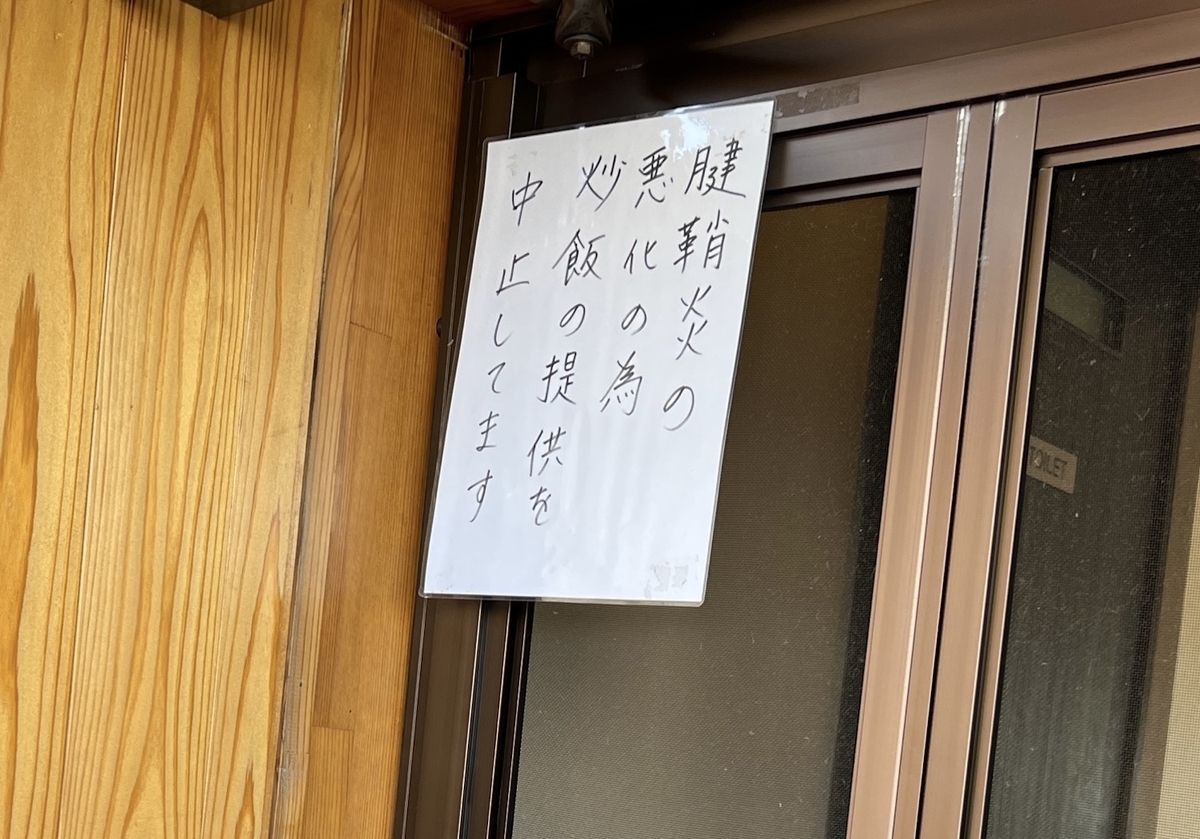 腱鞘炎の
悪化の為
炒飯の提供を
中止してます
TOILET